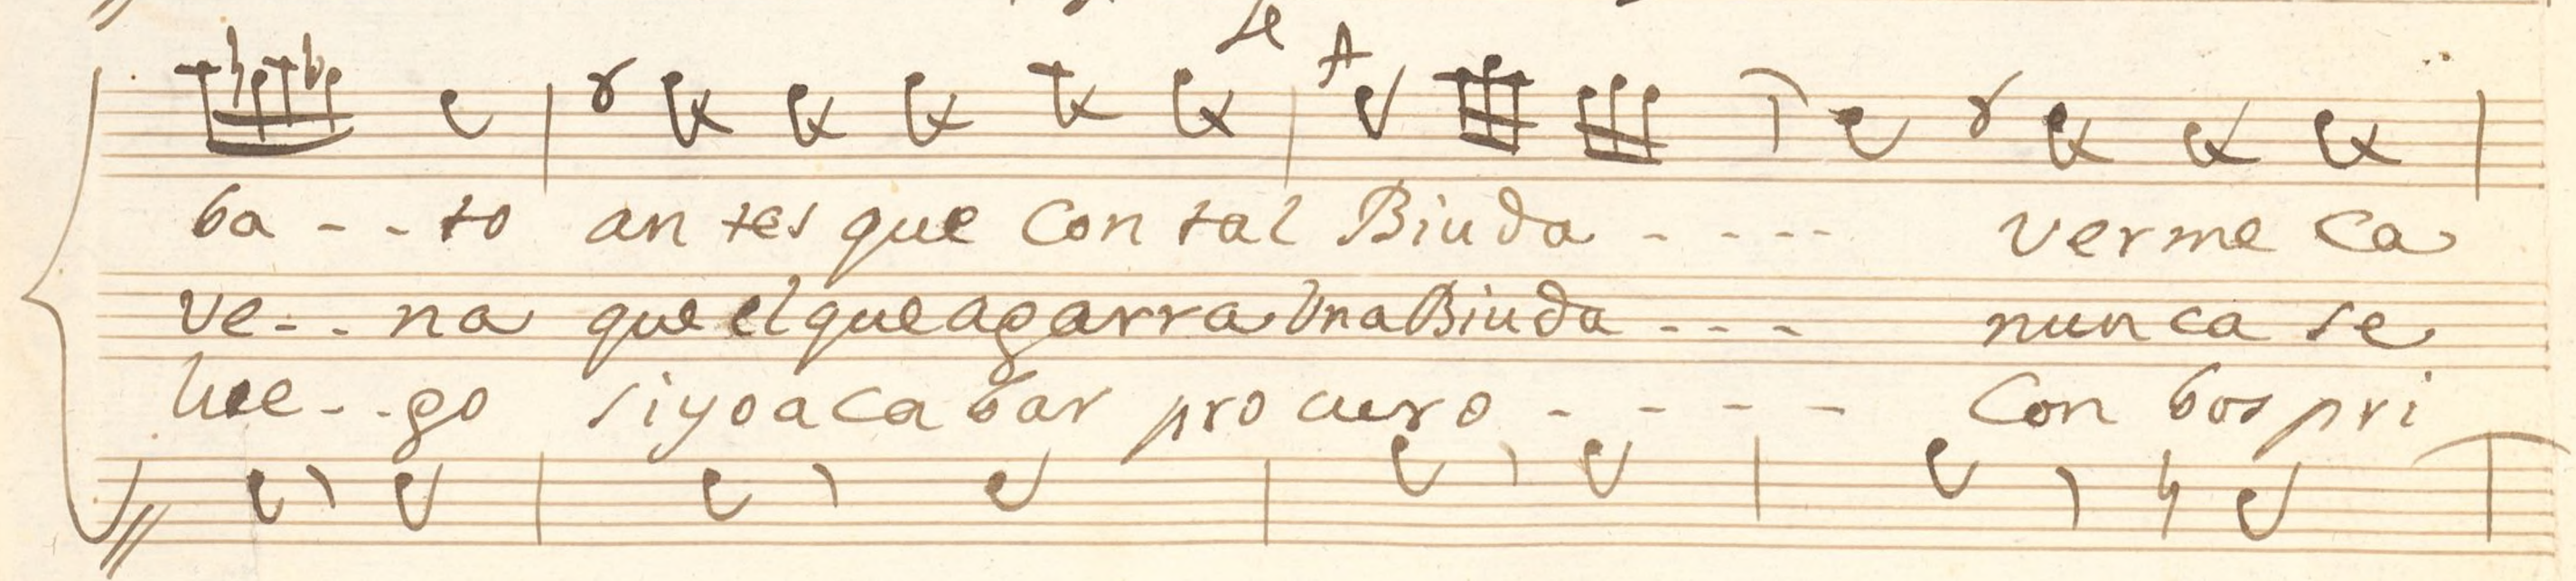 Le
A
ba - - to an tes que Con tal Biuda - - - - ver me Ca
ve - - na que el que agarra Una Biuda - - - nun ca se
lue - - go si yo a ca bar pro curo - - - - Con bos pri